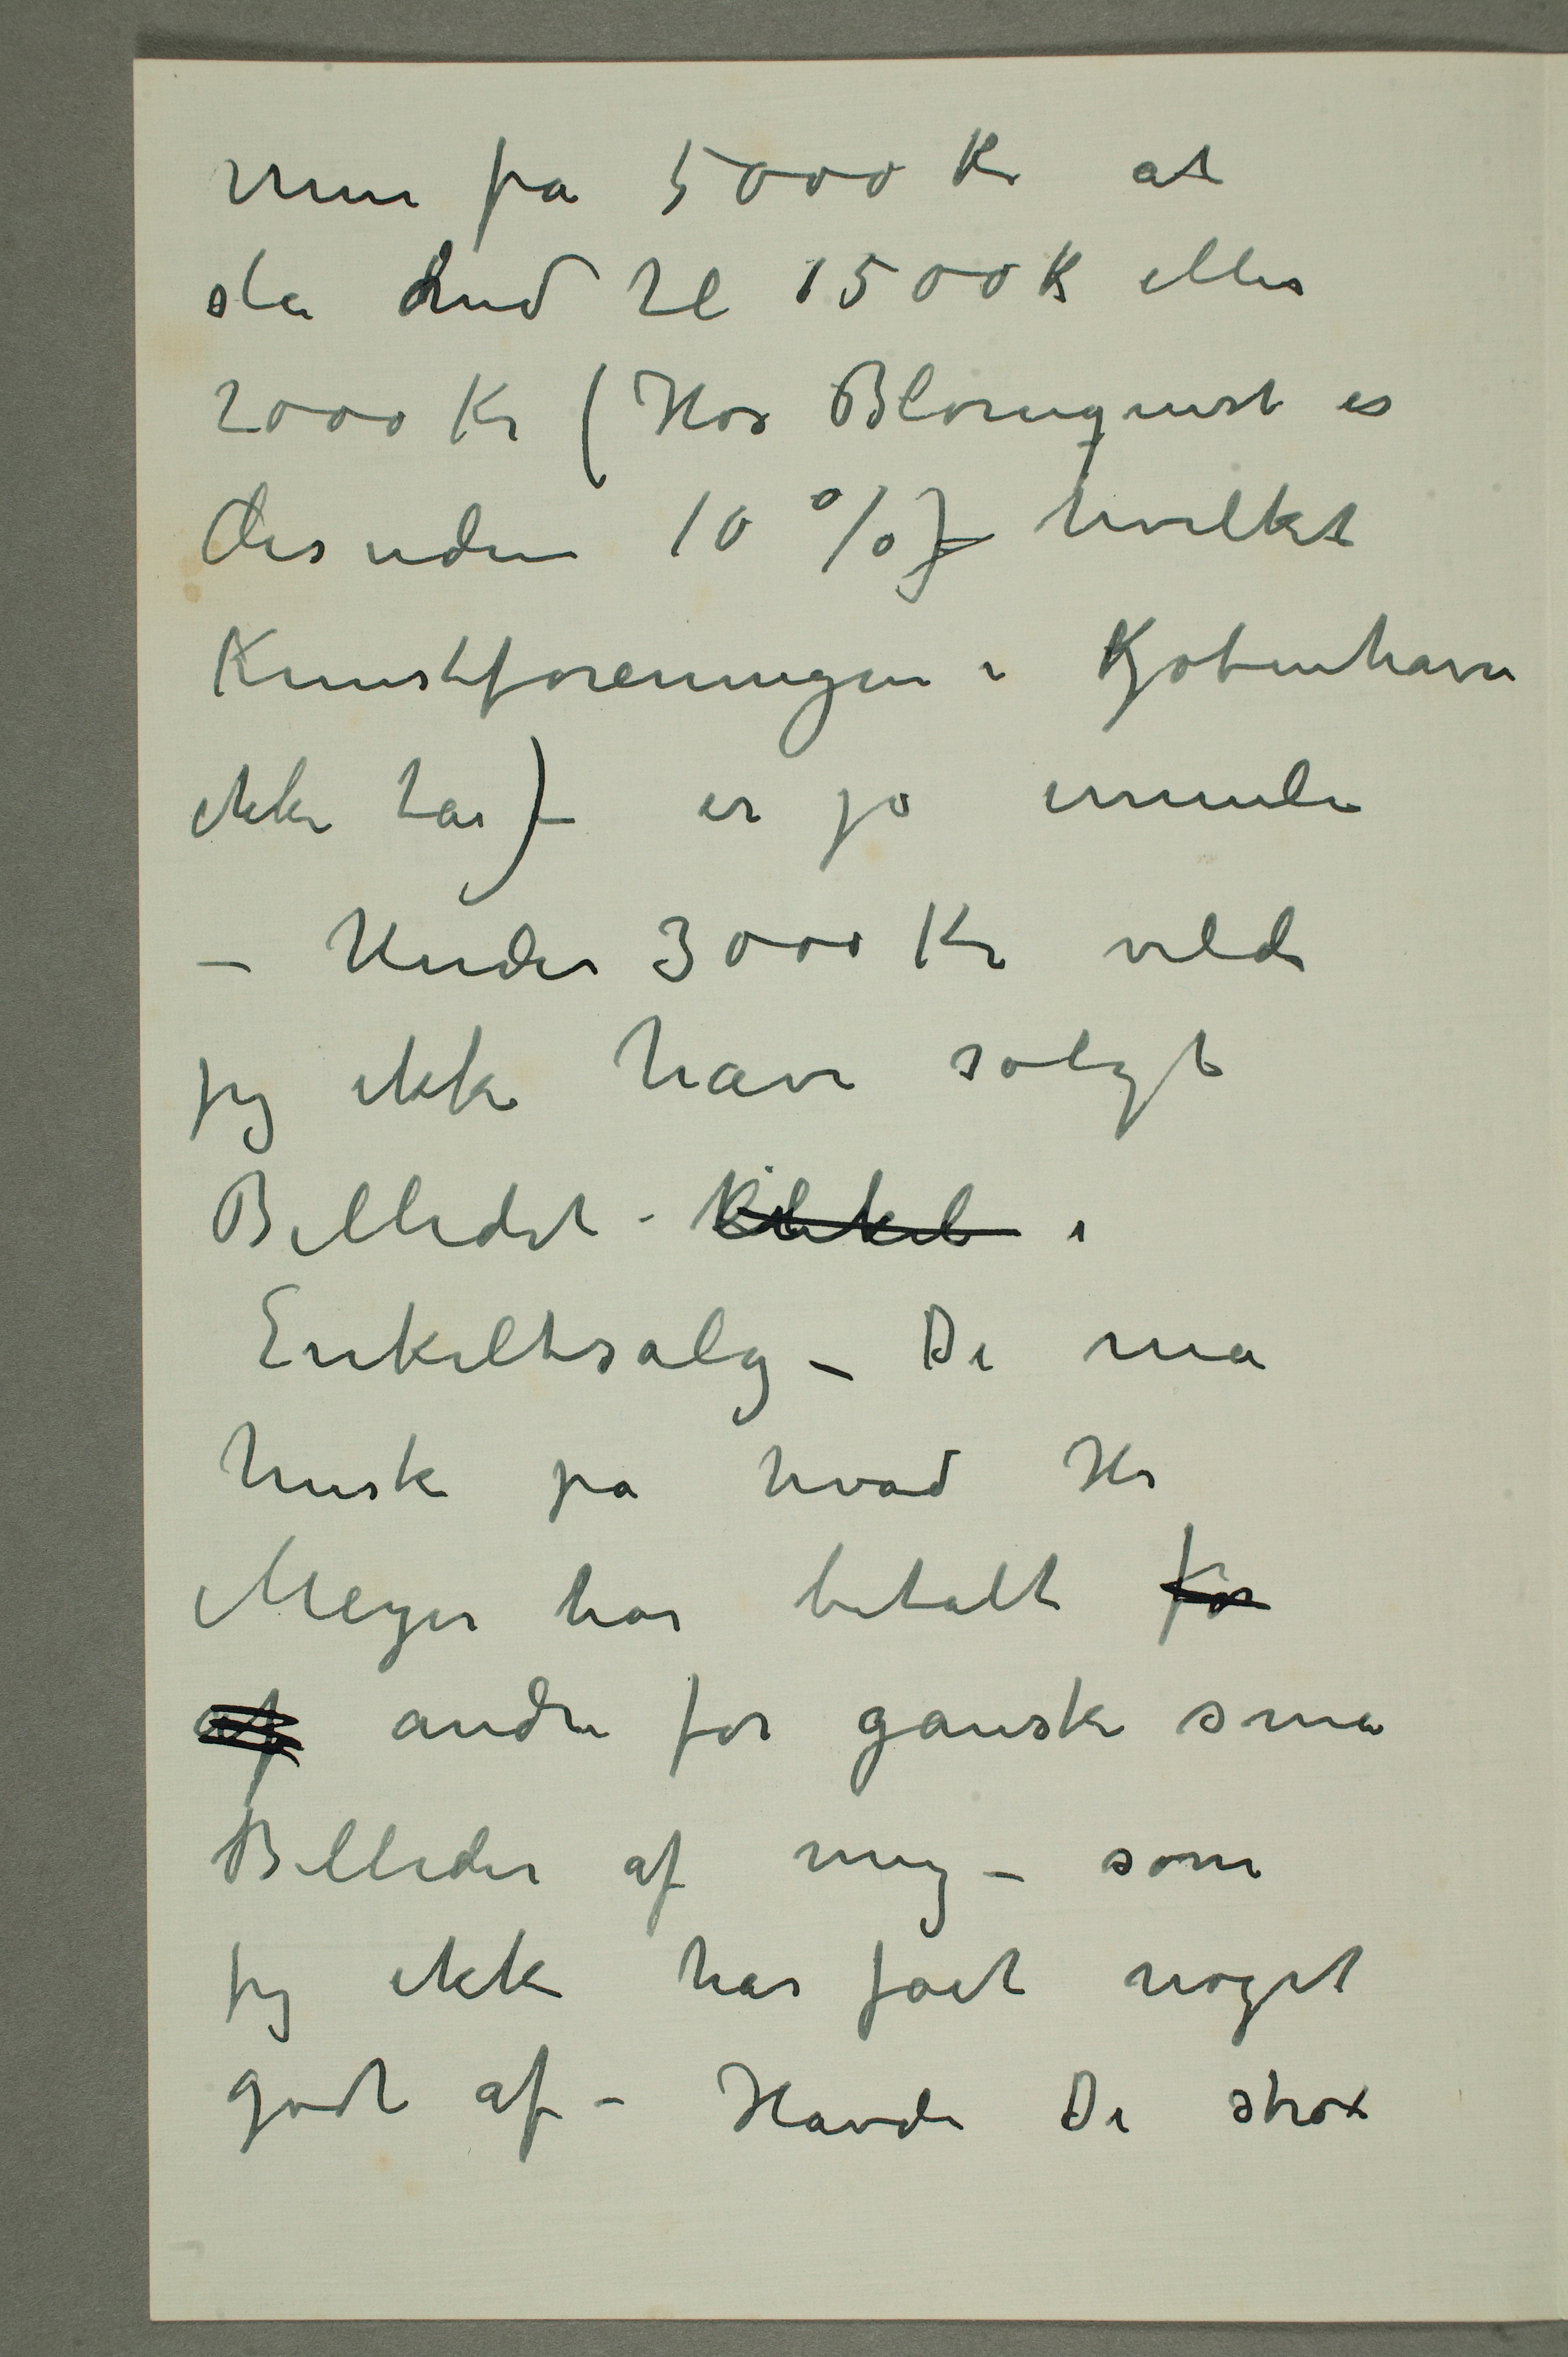 men fra 5000 Kr at
slå ned til 1500 Kr eller
2000 Kr (Hos Blomquist er
desuden 10 % hvilket
Kunstforeningen i Kjøbenhavn
ikke tar) – er jo umuli
– Under 3000 Kr vilde
jeg ikke have solgt
Billedet - i
Enkeltsalg – De må
huske på hvad Hr
Meyer har betalt for
af andre for ganske små
Billeder af mig – som
jeg ikke har fået noget
godt af – Havde De strax